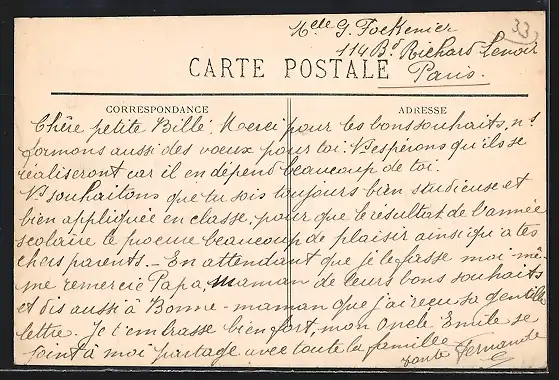 33
Mlle G. Fockenier
114 Bd Richard Lenoir
CARTE POSTALE
Paris.
CORRESPONDANCE
ADRESSE
Chère petite Billé. Merci pour tes bons souhaits, ns
formons aussi des vœux pour toi. Ns espérons qu'ils se
réaliseront car il en dépend beaucoup de toi.
Ns souhaitons que tu sois toujours bien studieuse et
bien appliquée en classe, pour que le résultat de l'année
scolaire te procure beaucoup de plaisir ainsi qu'à tes
chers parents. - En attendant que je le fasse moi-mê-
me remercie Papa, maman de leurs bons souhaits
et dis aussi à Bonne-maman que j'ai reçu sa gentille
lettre. Je t'embrasse bien fort, mon oncle Emile se
joint à moi partage avec toute la famille
tante Fernande